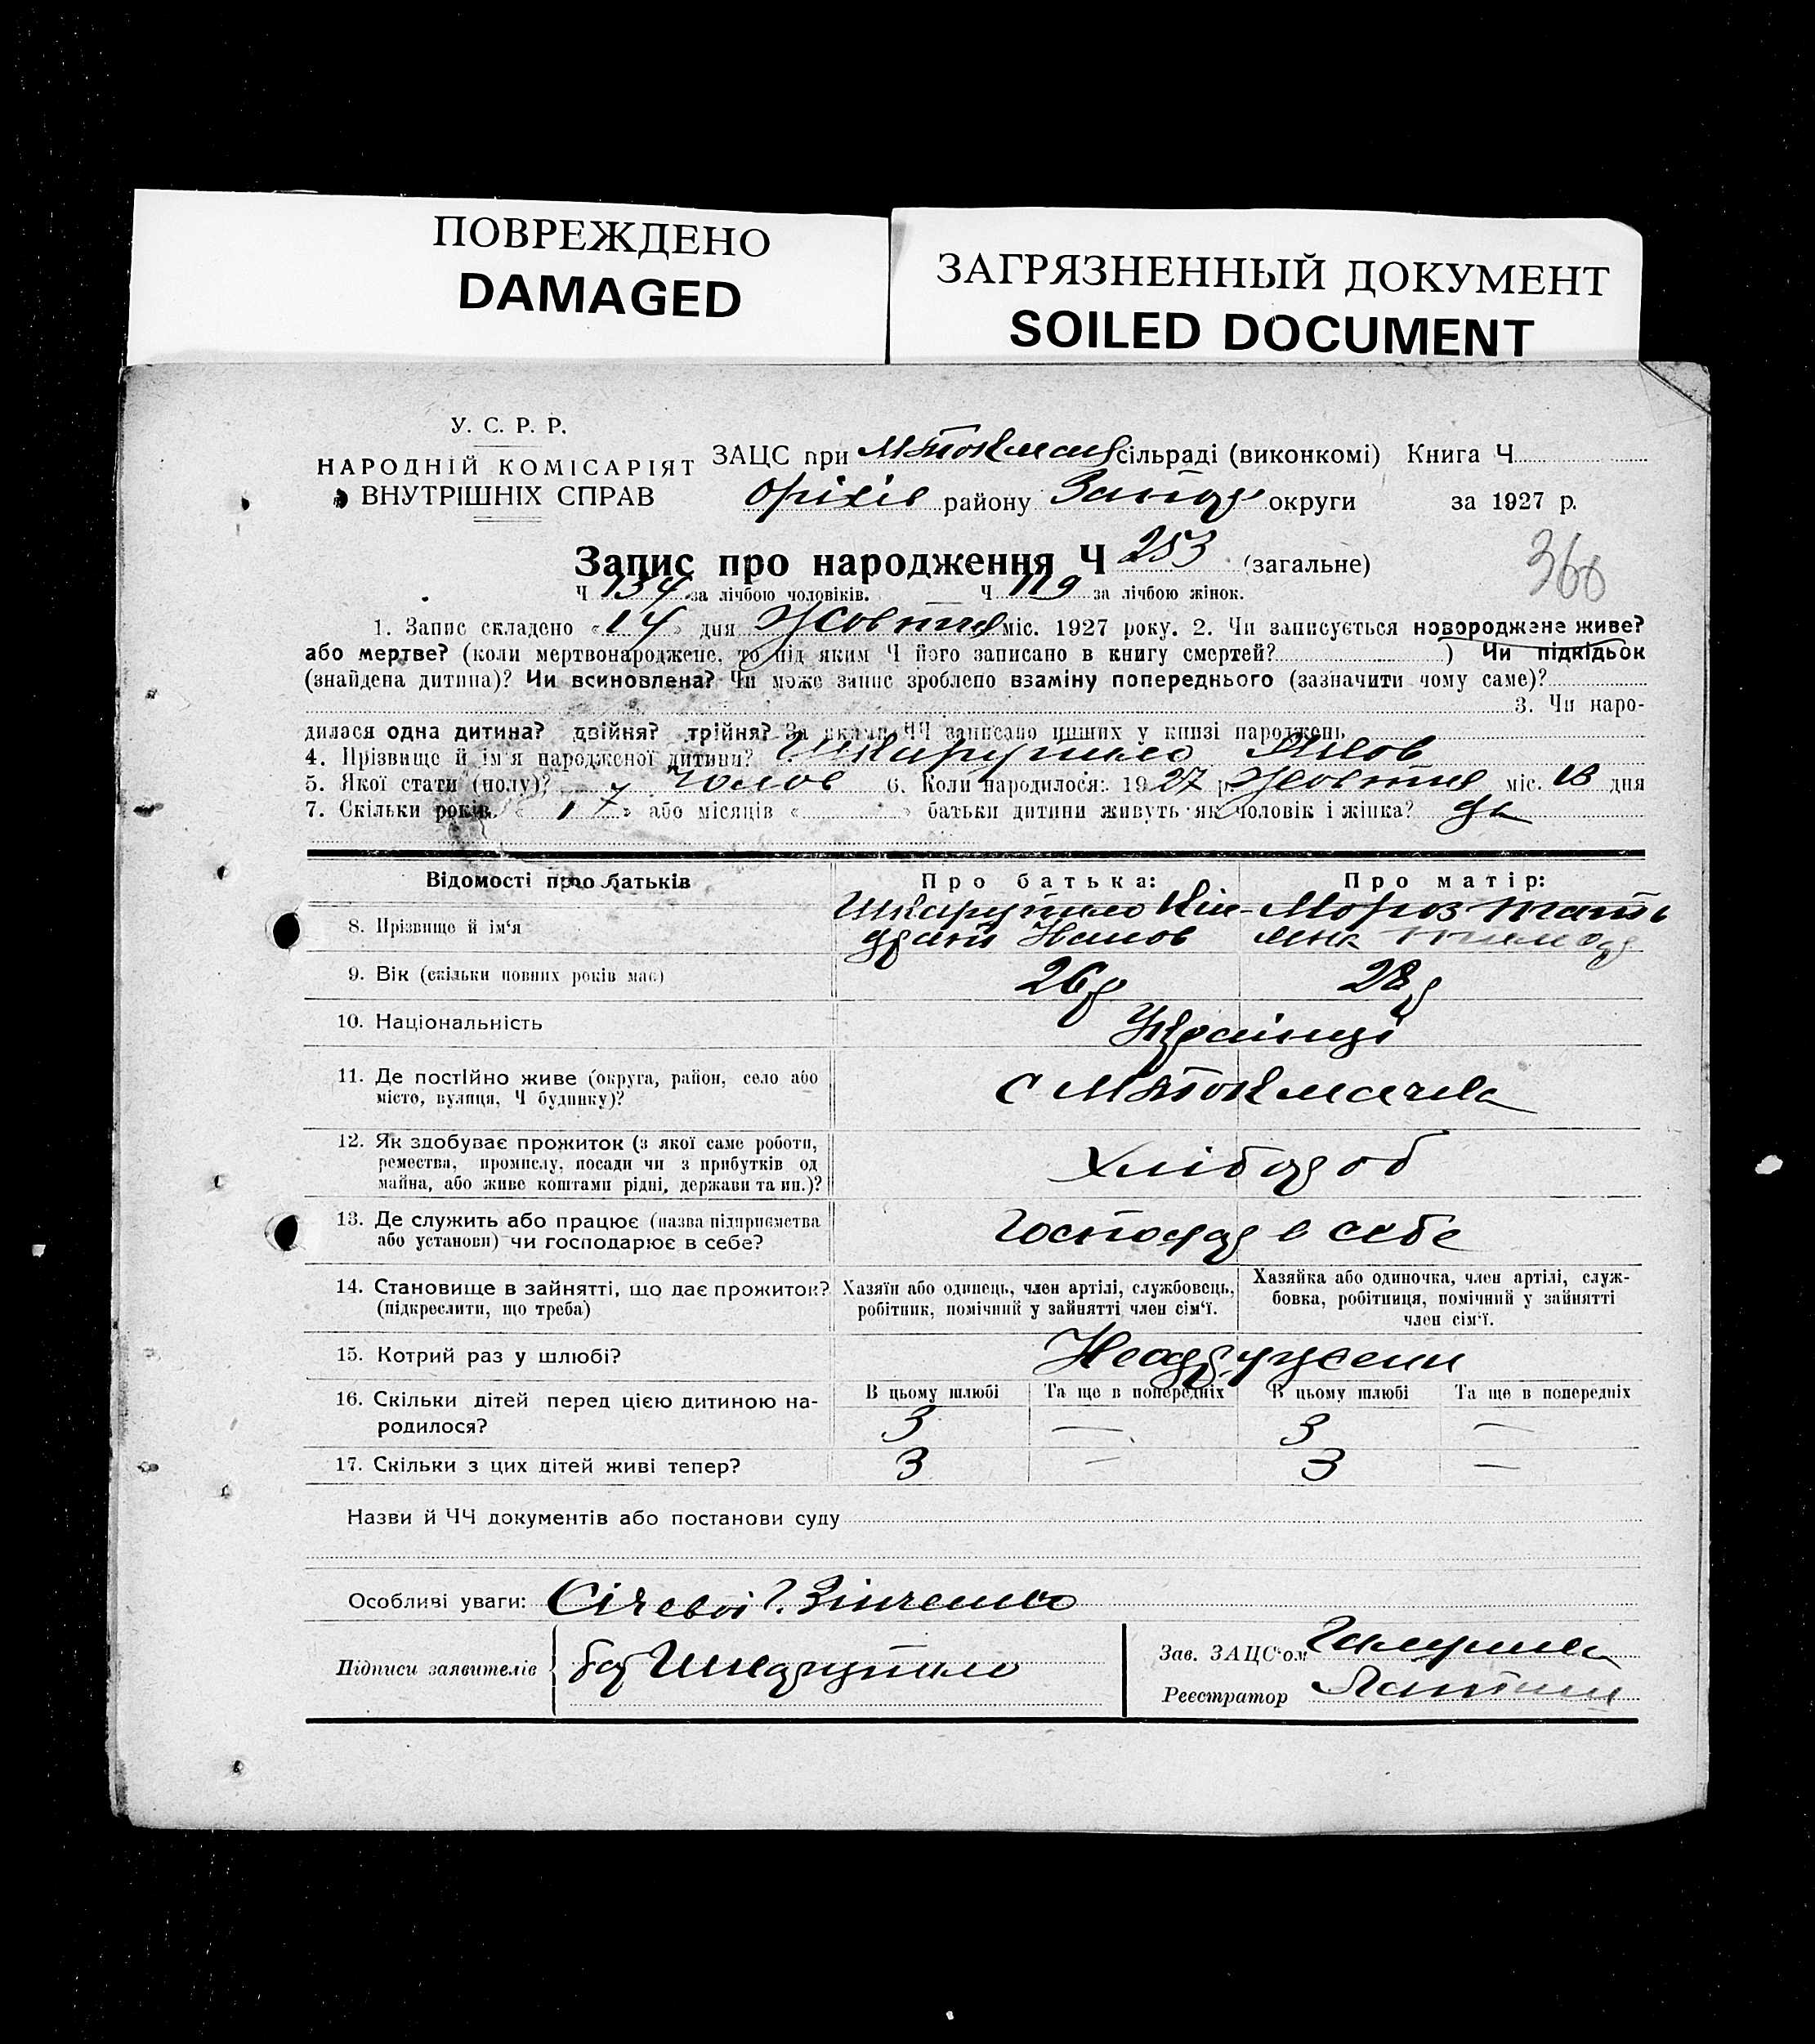 ПОВРЕЖДЕНО
DAMAGED
ЗАГРЯЗНЕННЫЙ ДОКУМЕНТ
SOILED DOCUMENT
У. С. Р. Р.
НАРОДНІЙ КОМІСАРІЯТ
ВНУТРІШНІХ СПРАВ
ЗАЦС при МТокмац сільраді (виконкомі) Книга Ч
Оріхів району Запор округи за 1927 р.
Запис про народження Ч 253 (загальне)
366
Ч 134 за лічбою чоловіків. Ч 119 за лічбою жінок.
1. Запис складено «14» дня Жовтня міс. 1927 року. 2. Чи записується новороджене живе?
або мертве? (коли мертвонароджене, то під яким Ч його записано в книгу смертей? ) Чи підкідьок
(знайдена дитина)? Чи всиновлена? Чи може запис зроблено взаміну попереднього (зазначити чому саме)?
3. Чи наро-
дилася одна дитина? двійня? трійня? За якими ЧЧ записано инших у книзі народжень
4. Прізвище й ім'я народженої дитини? Шкарупило Яков
5. Якої стати (полу)? чолов 6. Коли народилося: 1927 р Жовтня міс. 13 дня
7. Скільки років « 7 » або місяців « » батьки дитини живуть як чоловік і жінка? да
Відомості про батьків
Про батька:
Про матір:
8. Прізвище й ім'я
Шкарупило Кін- Мороз Тать
драт Йаков яна
9. Вік (скільки повних років має) 26р 28р
10. Національність Українці
11. Де постійно живе (округа, район, село або
місто, вулиця, Ч будинку)?
с МТокмачка
12. Як здобуває прожиток (з якої саме роботи,
ремества, промислу, посади чи з прибутків од
майна, або живе коштами рідні, держави та ин.)?
Хлібороб
13. Де служить або працює (назва підприємства
або установи) чи господарює в себе?
Господар в себе
14. Становище в зайнятті, що дає прожиток?
(підкреслити, що треба)
Хазяїн або одинець, член артілі, службовець,
робітник, помічний у зайнятті член сім'ї.
Хазяйка або одиночка, член артілі, служ-
бовка, робітниця, помічний у зайнятті
член сім'ї.
15. Котрий раз у шлюбі?
16. Скільки дітей перед цією дитиною на-
родилося?
В цьому шлюбі Та ще в попередніх В цьому шлюбі Та ще в попередніх
3 — 3 —
17. Скільки з цих дітей живі тепер? 3 — 3 —
Назви й ЧЧ документів або постанови суду
Особливі уваги: Січевої Г. Зінченко
Підписи заявителів бат Шкарупило
Зав. ЗАЦС'ом
Реєстратор